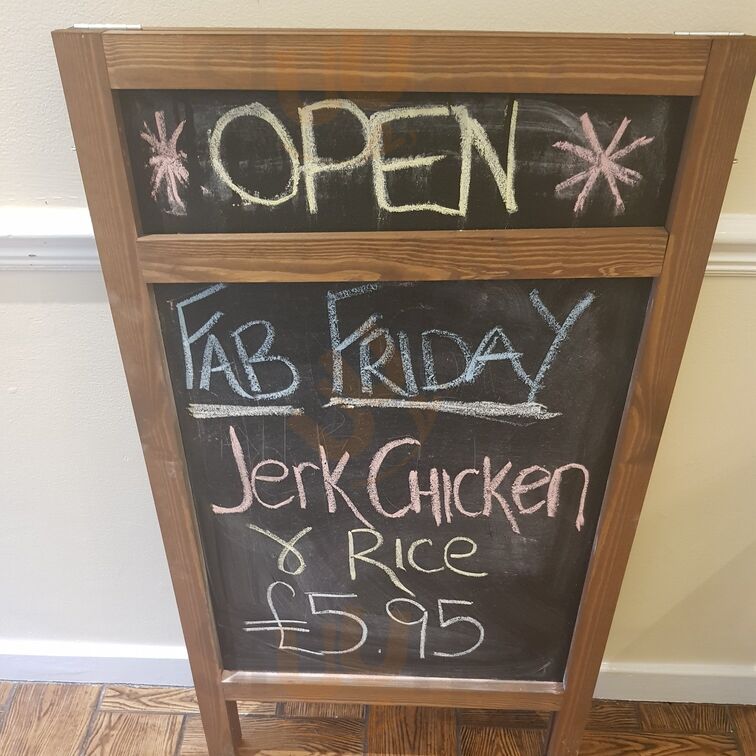 * OPEN *
FAB FRIDAY
Jerk CHICKEN
& RICE
£5.95